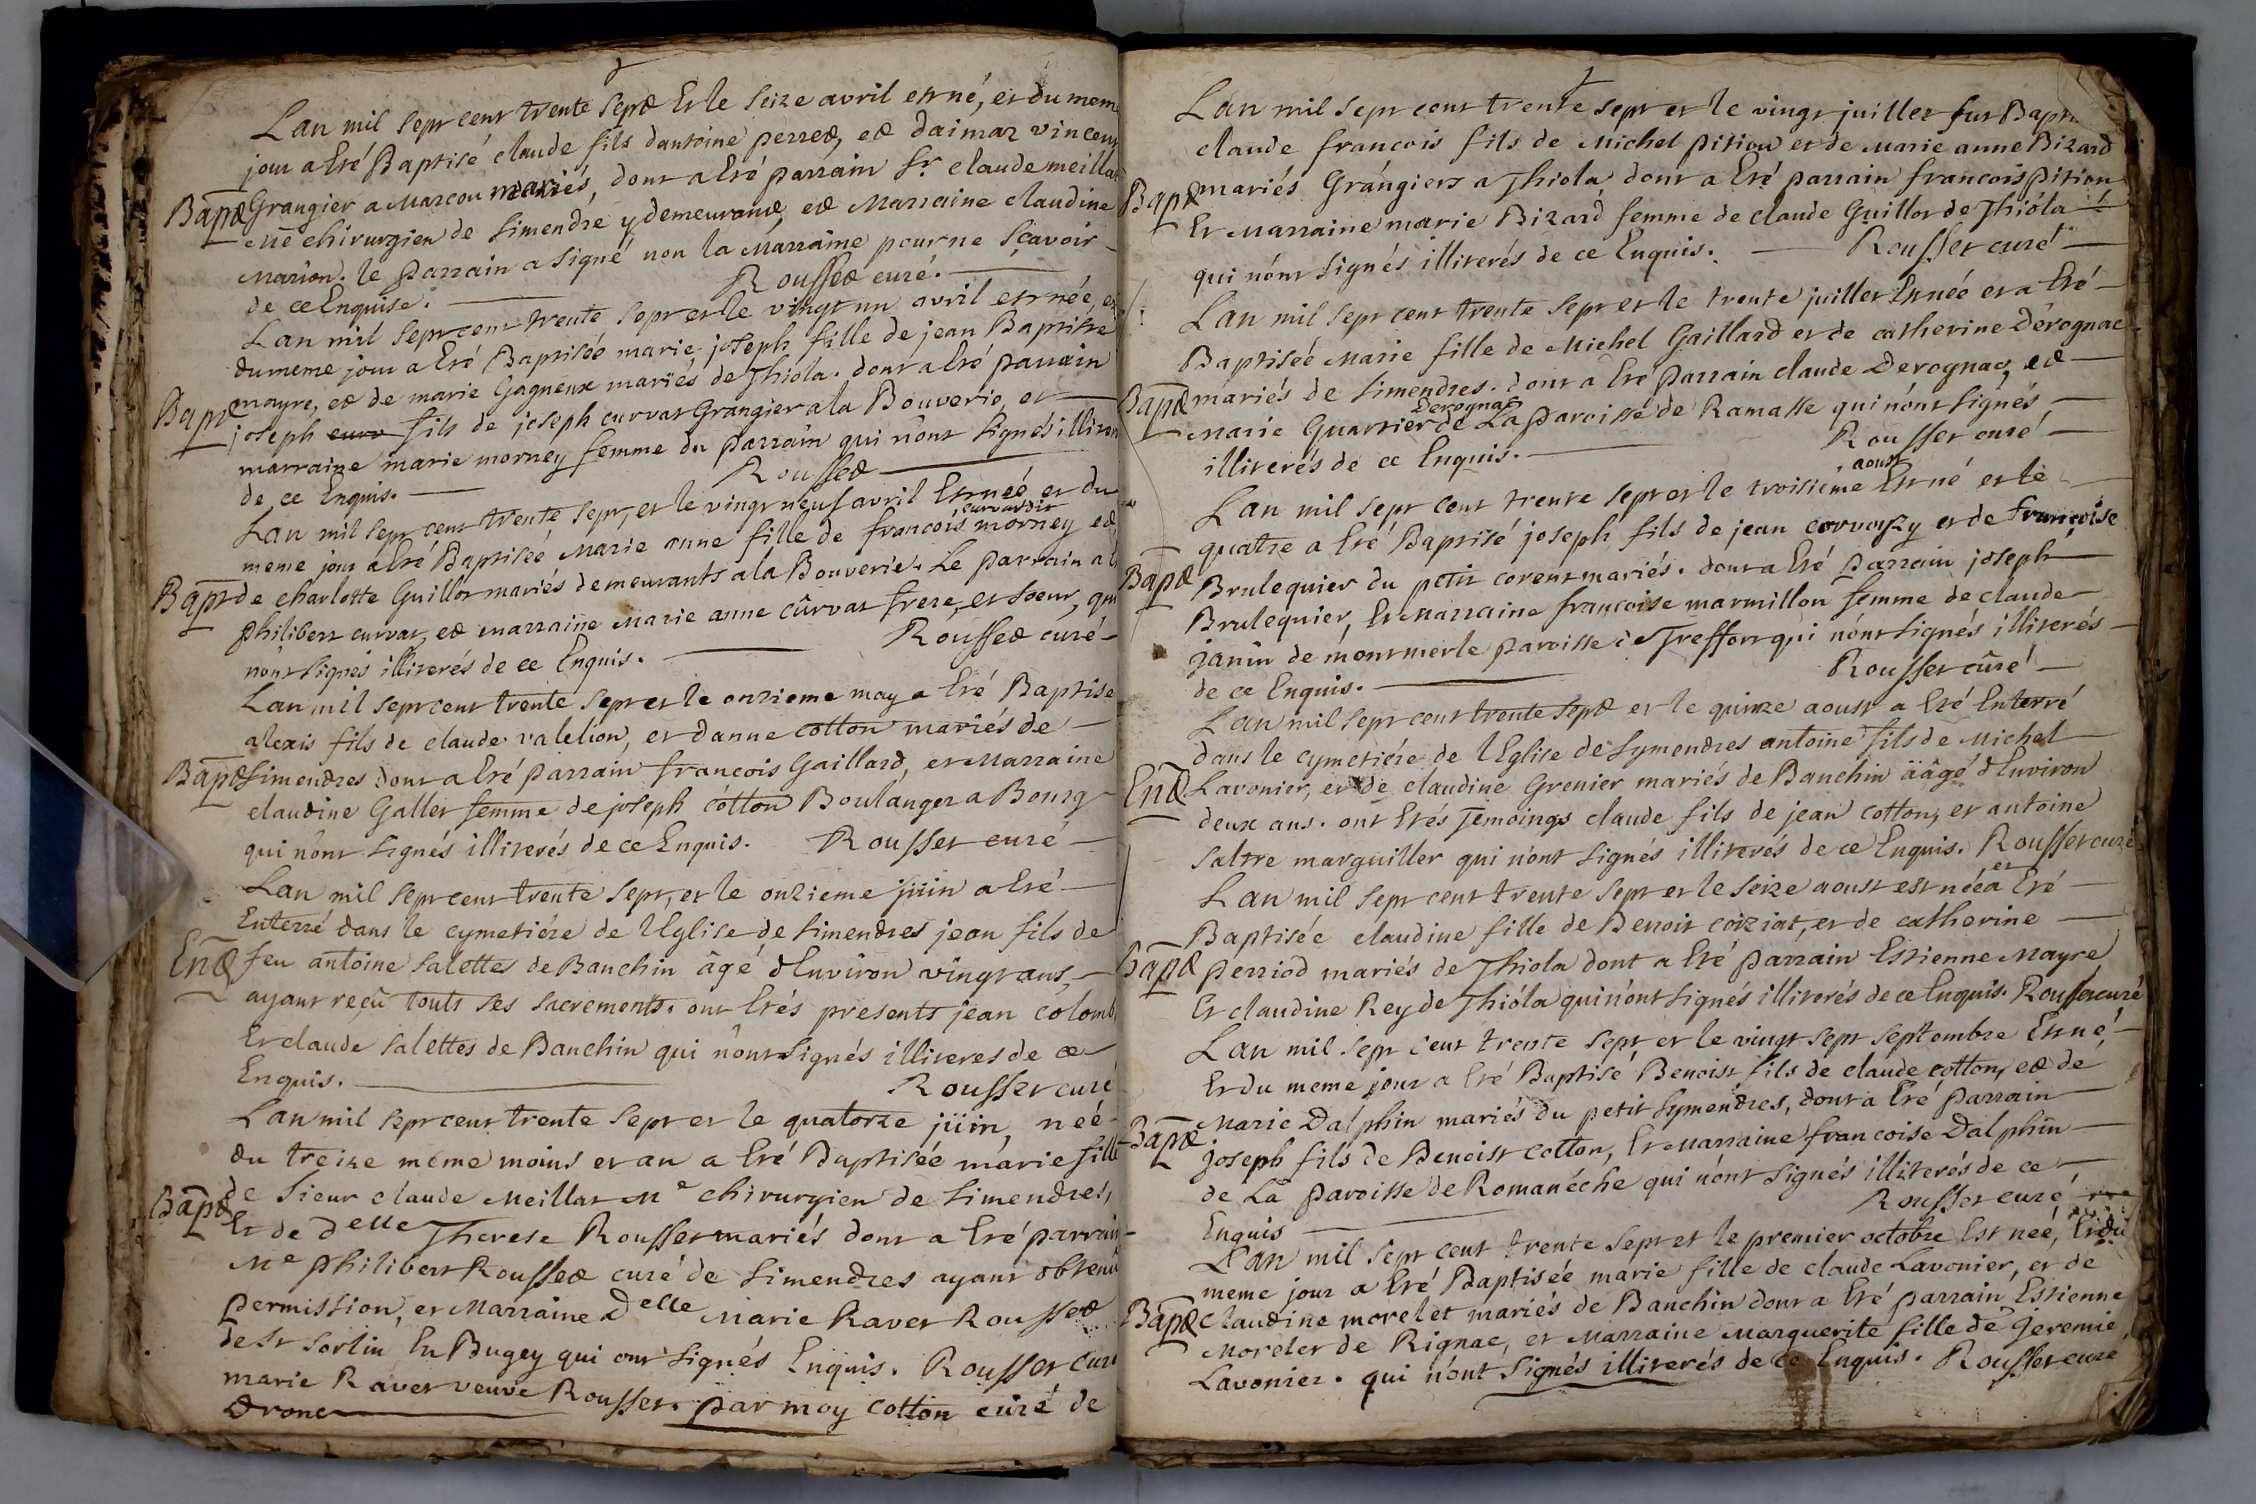 Lan mil sept cent trente sept Et le seize avril est né, et du meme
jour a Eté Baptisé claude fils dantoine perret, et daimaz vincent
Bapt Grangier a Marcou mariés, dont a Eté parrain Sr. claude meillat
Me chirurgien de Simendre y demeurant, et Marraine claudine
Marion. le parrain a signé non la Marraine pour ne sçavoir
de ce Enquise. Rousset curé.
Lan mil sept cent trente sept et le vingt un avril est née, et
du meme jour a Eté Baptisée marie joseph fille de jean Baptiste
mayre, et de marie Gagneux mariés de Thióla. dont a Eté parrain
Bapt joseph curv fils de joseph curvat Grangier a la Bouverie, et
marraine marie morney femme du parrain qui n'ont signés illiterés
de ce Enquis. Rousset
Lan mil sept cent trente sept, et le vingt neuf avril Est née et du
meme jour a Eté Baptisée Marie anne fille de francois curvat dit morney et
Bapt de charlotte Guillot mariés demeurants a la Bouverie. Le parrain a Eté
philibert curvat, et marraine Marie anne cûrvat frere, et soeur, qui
n'ont signés illiterés de ce Enquis. Rousset curé
Lan mil sept cent trente sept et le onzieme may a Eté Baptise
alexis fils de claude valelion, et danne cotton mariés de
Bapt Simendres dont a Eté parrain francois Gaillard, et Marraine
claudine Gallet femme de joseph cotton Boulanger a Bourg
qui n'ont signés illiterés de ce Enquis. Rousset curé
Lan mil sept cent trente sept, et le onzieme juin a Eté
Enterré dans le cymetiére de l'Eglise de Simendres jean fils de
Ent feu antoine Salettes de Banchin âgé d'Environ vingt ans,
ayant reçû touts ses sacrements. ont Etés presents jean colomb
Et claude Salettes de Banchin qui n'ont signés illiteres de ce
Enquis. Rousset curé
Lan mil sept cent trente sept et le quatorze juin, neé
du treize méme moins et an a Eté Baptisée marie fille
Bapt de Sieur claude Meillat Me chirurgien de Simendres,
Et de Delle Therese Rousset mariés dont a Eté parrain
Me philibert Rousset curé de Simendres ayant obtenu
permission, et Marraine Delle Marie Ravet Rousset
de St Sorlin En Bugey qui ont signés Enquis. Rousset curé
marie Ravet veuve Rousset. par moy cotton curé de
Drone
Lan mil sept cent trente sept et le vingt juillet fut Bapt
claude francois fils de Michel pition et de Marie anne Bizard
Bapt mariés Grángiers a Thiola dont a Eté parrain francois pition
Et Marraine marie Bizard femme de claude Guillot de Thióla
qui n'ont signés illiterés de ce Enquis. Rousset curé
Lan mil sept cent trente sept et le trente juillet Est née et a Eté
Baptiseé Marie fille de Michel Gaillard et de catherine Dérognac
Bapt mariés de Simendres. dont a Eté parrain claude Derognac, et
Marie Quartier Derognac de La paroisse de Ramasse qui n'ont signés
illiterés de ce Enquis. Rousset curé
Lan mil sept cent trente sept et le troisieme aoust Est né et le
quatre a Eté Baptisé joseph fils de jean corvoyzy et de francoise
Bapt Brulequier du petit corent mariés. dont a Eté parrain joseph
Brulequier, Et Marraine francoise marmillon femme de claude
janin de montmerle paroisse de Treffort qui n'ont signés illiterés
de ce Enquis. Rousset cûré
Lan mil sept cent trente sept et le quinze aoust a Eté Enterré
dans le cymetiére de l'Eglise de Symendres antoine fils de Michel
Ent Lavonier, et de claudine Grenier mariés de Banchin äâgé d'Environ
deux ans. ont Etés Temoings claude fils de jean cotton, et antoine
Saltre marguiller qui n'ont signés illiterés de ce Enquis. Rousset curé
Lan mil sept cent trente sept et le seize aoust est née et a Eté
Baptisée claudine fille de Benoit coiziat, et de catherine
Bapt perriod mariés de Thiola dont a Eté parrain Estienne Mayre
Et claudine Rey de Thióla qui n'ont signés illiterés de ce Enquis. Rousset curé
Lan mil sept cent trente sept et le vingt sept septembre Est né,
Et du meme jour a Eté Baptisé Benoist fils de claude cotton, et de
Bapt Marie Dalphin mariés du petit Symendres, dont a Eté parrain
joseph fils de Benoist cotton, Et Marraine francoise Dalphin
de La paroisse de Romanéche qui n'ont signés illiterés de ce
Enquis Rousset curé
Lan mil sept cent trente sept et le premier octobre Est neé, Et du
meme jour a Eté Baptisée marie fille de claude Lavonier, et de
Bapt claudine morelet mariés de Banchin dont a Eté parrain Estienne
Morelet de Rignac, et Marraine Marguerite fille de jeremie
Lavonier. qui n'ont signés illiterés de ce Enquis. Rousset curé